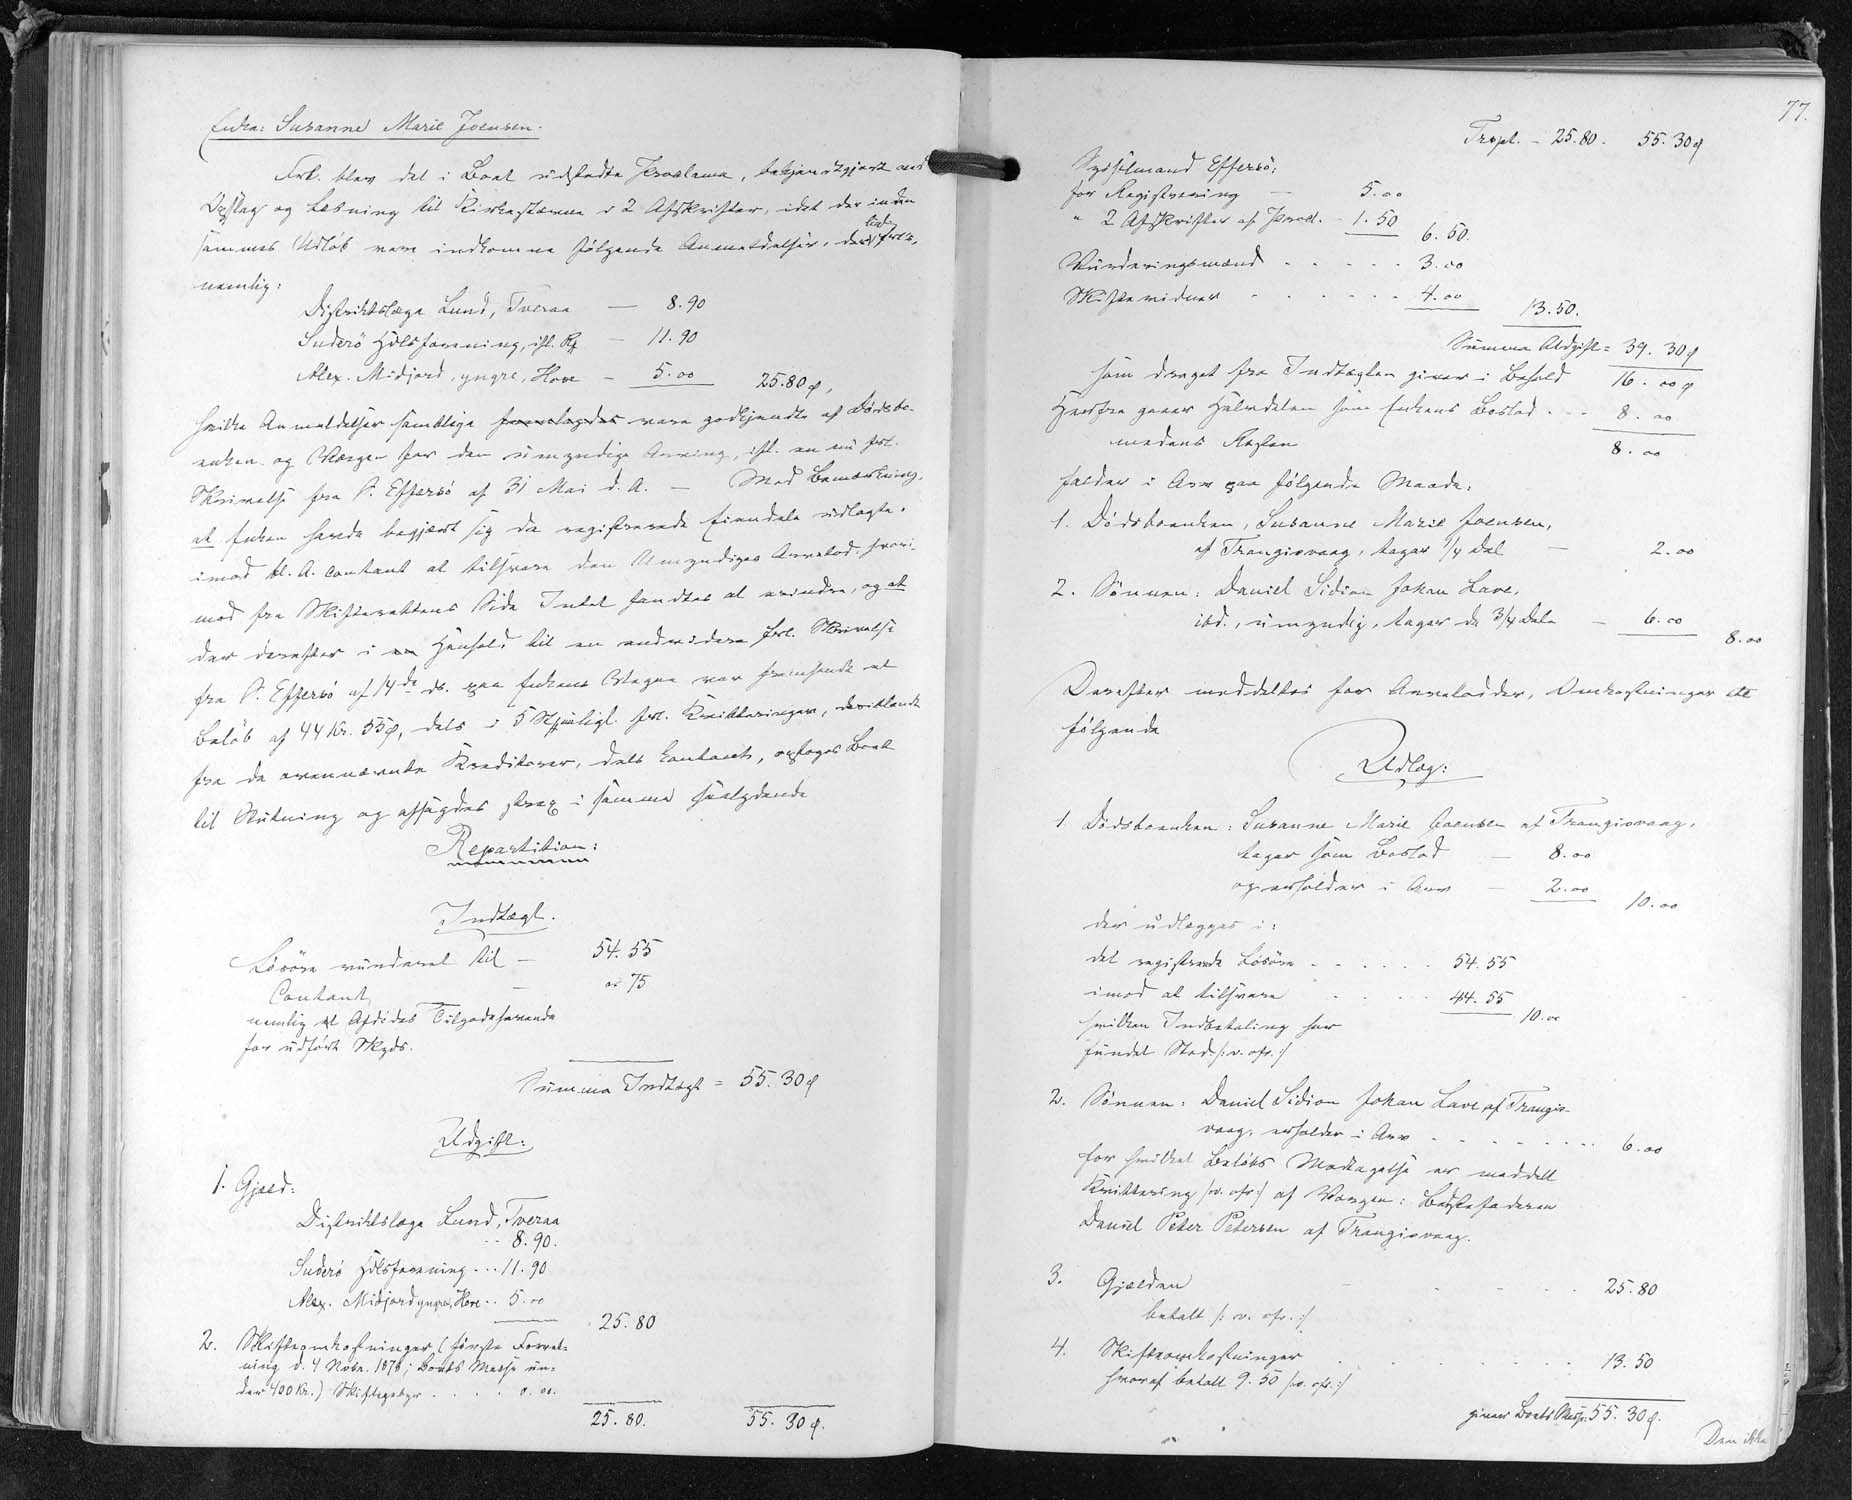 Enken: Susanne Marie Joensen.
Frt. blev det i Boet udstedte Proclama, bekjendtgjort ved
Opslag og Læsning til Kirkestævne i 2 Afskrifter, idet der inden
sammes Udløb vare indkomne følgende Anmeldelser,
nemlig:
Distriktslæge Lund, Tveraa — 8.90
Suderö Hdlsforening, ifl. Rg — 11.90
Alex. Midjord, yngre, Hove — 5.00 25.80 ø,
hvilke Anmeldelser samtlige fremlagdes vare godkjendte af Dødsbo-
enken og Værgen for den umyndige Arving, ifl. en nu frl.
Skrivelse fra S. Effersö af 31 Mai d. A. — Med Bemærkning,
at Enken havde begjært sig de registrerede Eiendele udlagte,
imod bl. A. contant at tilsvare den Umyndiges Arvelod, hvori-
mod fra Skifterettens Side Intet fandtes at erindre, og at
der derefter i en Henhold til en endvidere frl. Skrivelse
fra S. Effersö af 14de ds. paa Enkens Vegne var fremsendt et
Beløb af 44 Kr. 55 ø, dels i 5 Stk. frl. Kvitteringer,
fra de ovennævnte Kreditorer, dels Contant, optoges Boet
til Slutning og afsagdes strax i samme saalydende
Repartition:
Indtægt.
Løsøre vurderet til — 54.55
Contant — 00 75
nemlig et Afdødes Tilgodehavende
for udført Skyds.
Summa Indtægt = 55.30 ø
Udgift:
1. Gjæld:
Distriktslæge Lund, Tveraa
8.90.
Suderö Hdlsforening ... 11.90
Alex. Midjord yngre, Hove .. 5.00
25.80
2. Skifteomkostninger (første Forret-
ning d. 4 Novbr. 1878; Boets Masse un-
der 400 Kr.) Skiftegebyr . . . . 0.00.
25.80. 55.30 ø.
77.
Trspt. — 25.80. 55.30 ø
Sysselmand Effersö:
for Registrering — 5.00
" 2 Afskrifter af Procl. — 1.50 6.50.
Vurderingsmænd . . . . . 3.00
Skiftevidner . . . . . . 4.00
13.50.
Summa Udgift = 39.30 ø
som draget fra Indtægten giver i Behold 16.00 ø
Herfra gaaer Halvdelen som Enkens Boslod . . . 8.00
medens Resten 8.00
falder i Arv paa følgende Maade:
1. Dödsboenken, Susanne Marie Joensen,
af Trangisvaag, tager 1/4 Del — 2.00
2. Sönnen: Daniel Sidion Johan Lave,
ibd., umyndig, tager de 3/4 Dele — 6.00
8.00
Derefter meddeltes for Arvelodder, Omkostninger etc
følgende
Udlæg:
1. Dödsboenken: Susanne Marie Joensen af Trangisvaag,
tager som Boslod — 8.00
og erholder i Arv — 2.00 10.00
der udlægges i:
det registrerede Løsøre . . . . . . 54.55
imod at tilsvare . . . . . 44.55
10.00
hvilken Indbetaling har
fundet Sted /: v. ofr. :/
2. Sönnen: Daniel Sidion Johan Lave af Trangis-
vaag, erholder i Arv . . . . . . . . 6.00
for hvilket Beløbs Modtagelse er meddelt
Kvittering /: v. ofr. :/ af Værgen: Bedstefaderen
Daniel Peter Petersen af Trangisvaag.
3. Gjælden . . . . 25.80
betalt /: v. ofr. :/
4. Skifteomkostninger . . . . . . . . 13.50
hvoraf betalt 9.50 /: v. ofr. :/
giver Boets Masse: 55.30 ø.
Den ikke